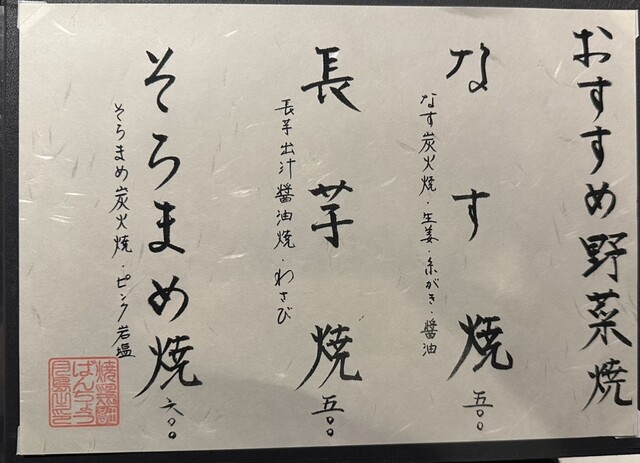 おすすめ野菜焼
なす焼 五〇〇
なす炭火焼・生姜・糸がき・醤油
長芋焼 五〇〇
長芋出汁醤油焼・わさび
そらまめ焼 六〇〇
そらまめ炭火焼・ピンク岩塩
ばんちょう